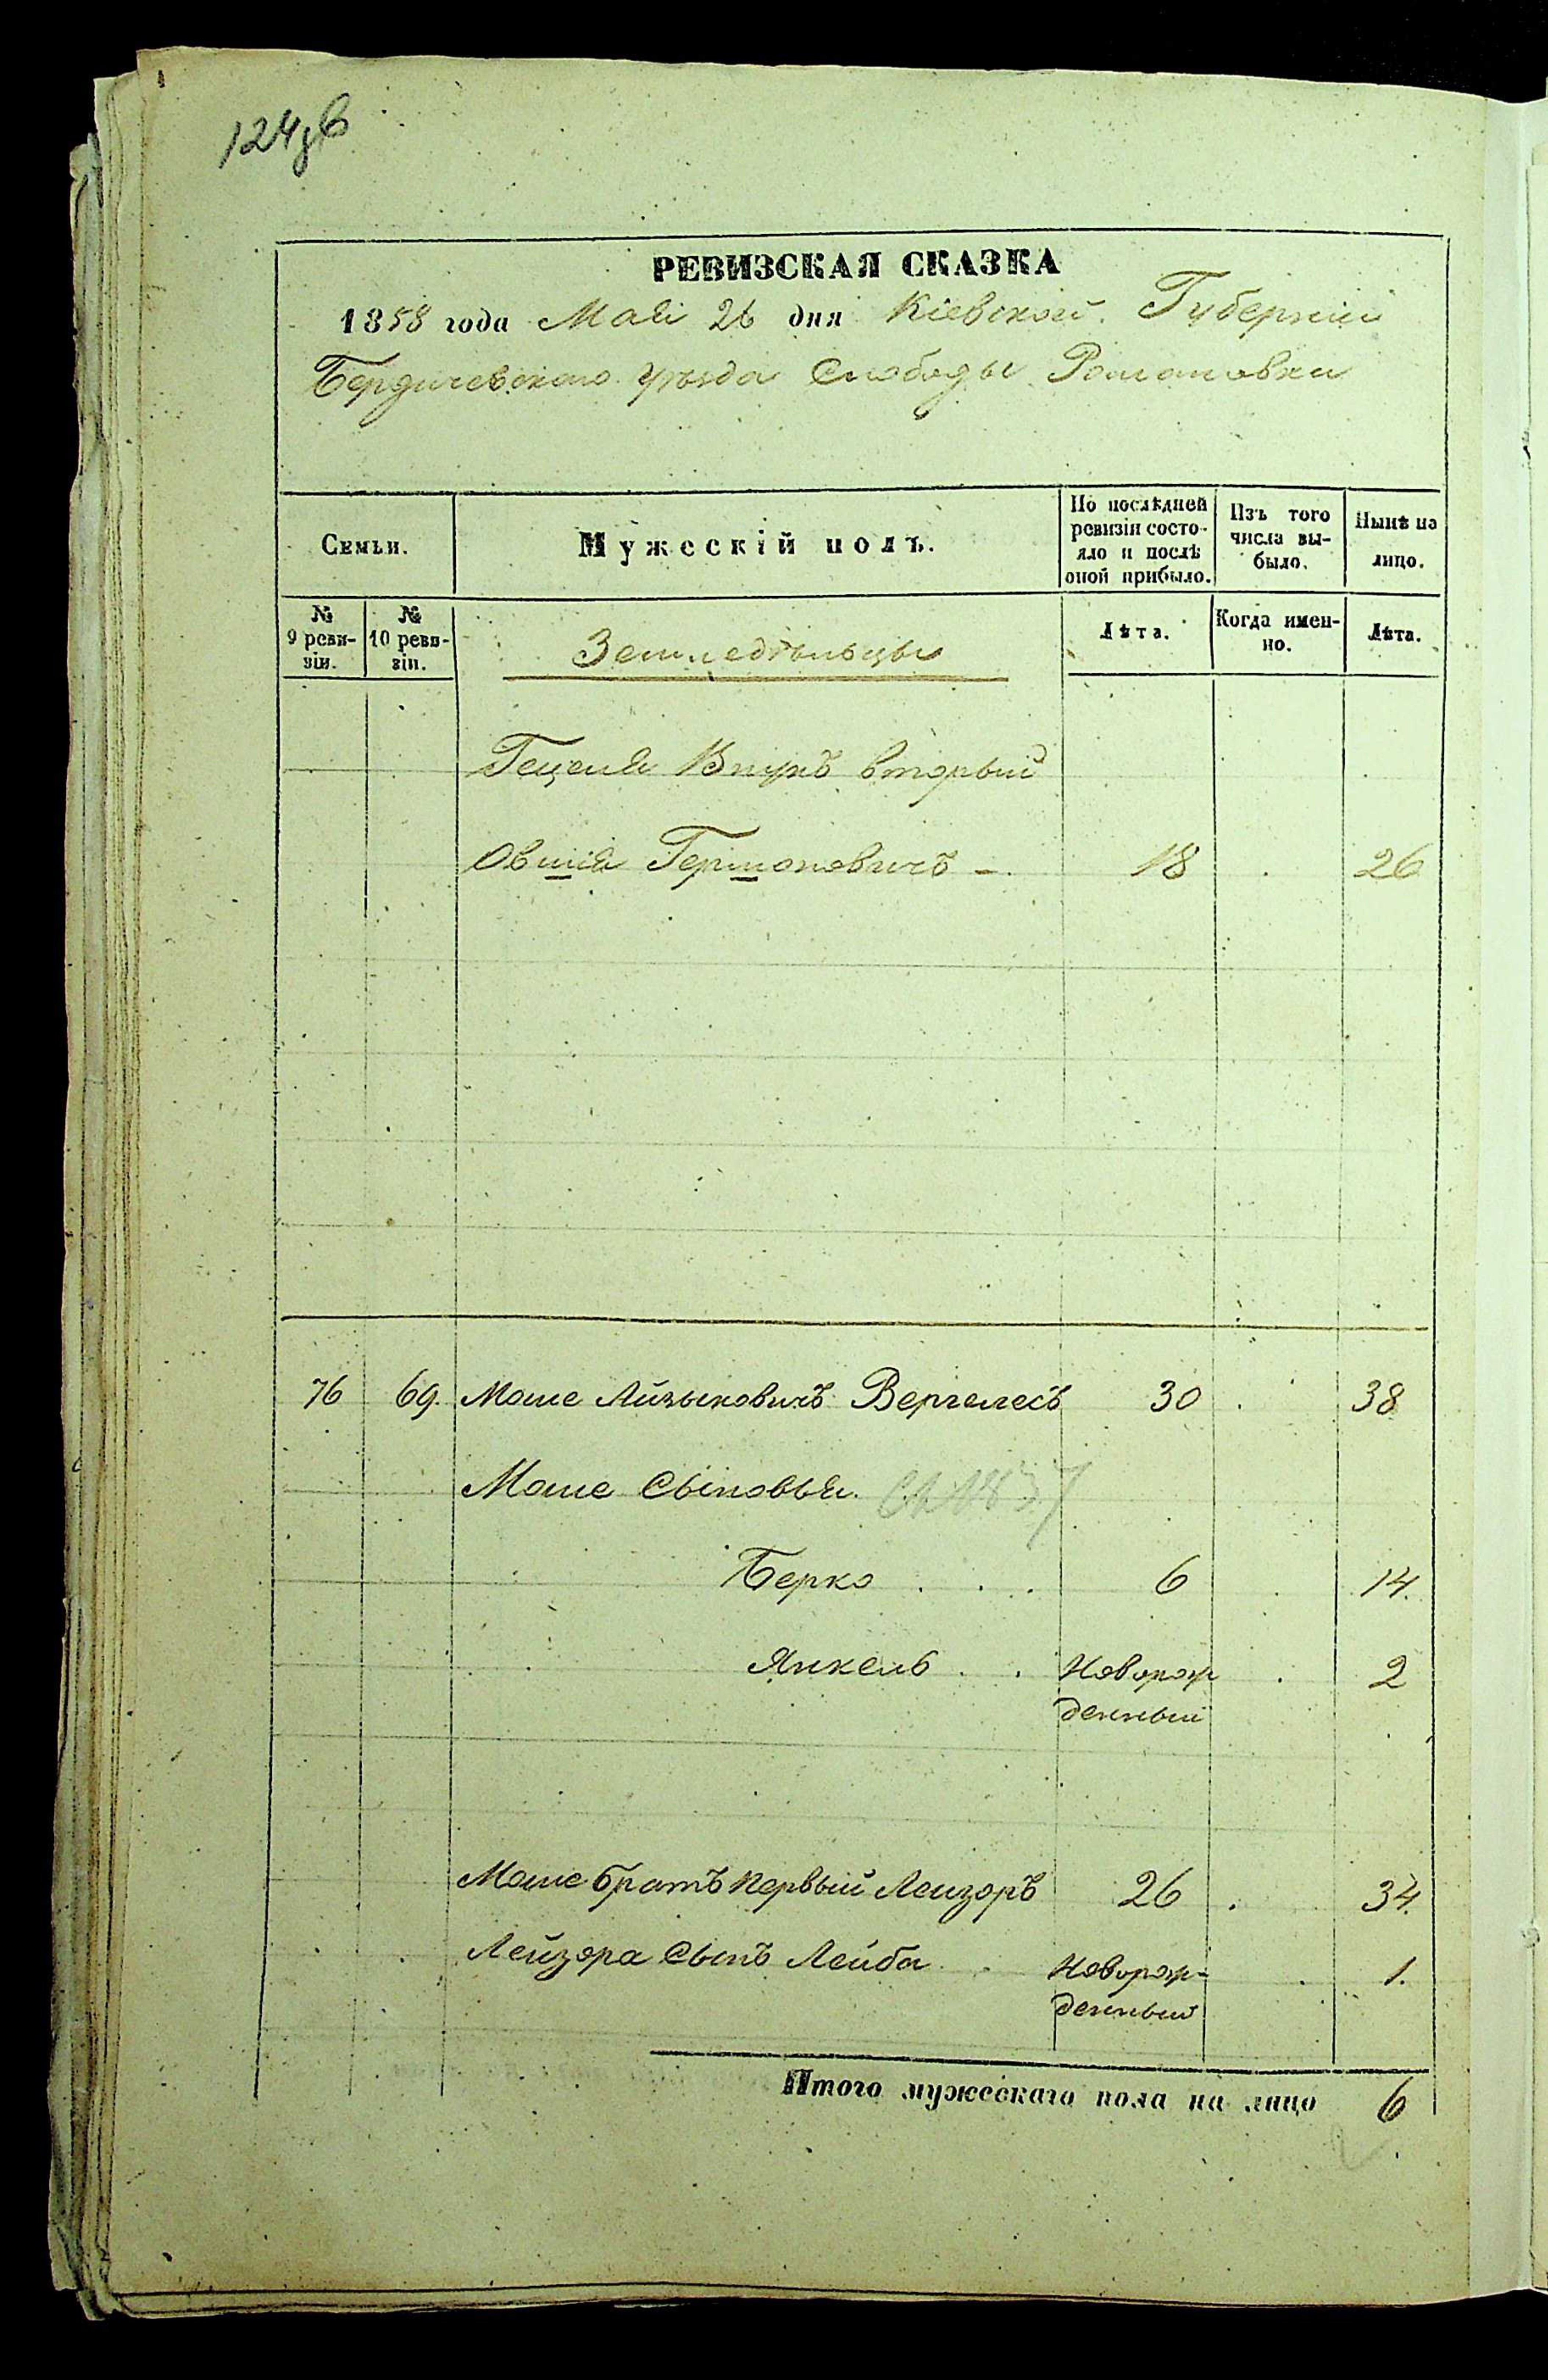 124зв
РЕВИЗСКАЯ СКАЗКА
1858 года Мая 26 дня Кіевской Губерніи
Бердичевскаго уѣзда Слободы Романовки
Семьи.
Мужескій полъ.
По послѣдней ревизіи состояло и послѣ оной прибыло.
Изъ того числа выбыло.
Нынѣ на лицо.
№ 9 ревизіи.
№ 10 ревизіи.
Земледѣльцы
Лѣта.
Когда именно.
Лѣта.
Гецеля Внукъ вторый
Овшія Гершоновичъ - 18 26
76 69. Моше Айзыковичъ Вергелесъ 30 38
Моше Сыновья.
Берко . . . 6 14.
Янкель . . Новорож 2
денный
Моше братъ первый Лейзоръ 26 34.
Лейзора Сынъ Лейба . Новорож- 1.
денный
Итого мужескаго пола на лицо 6